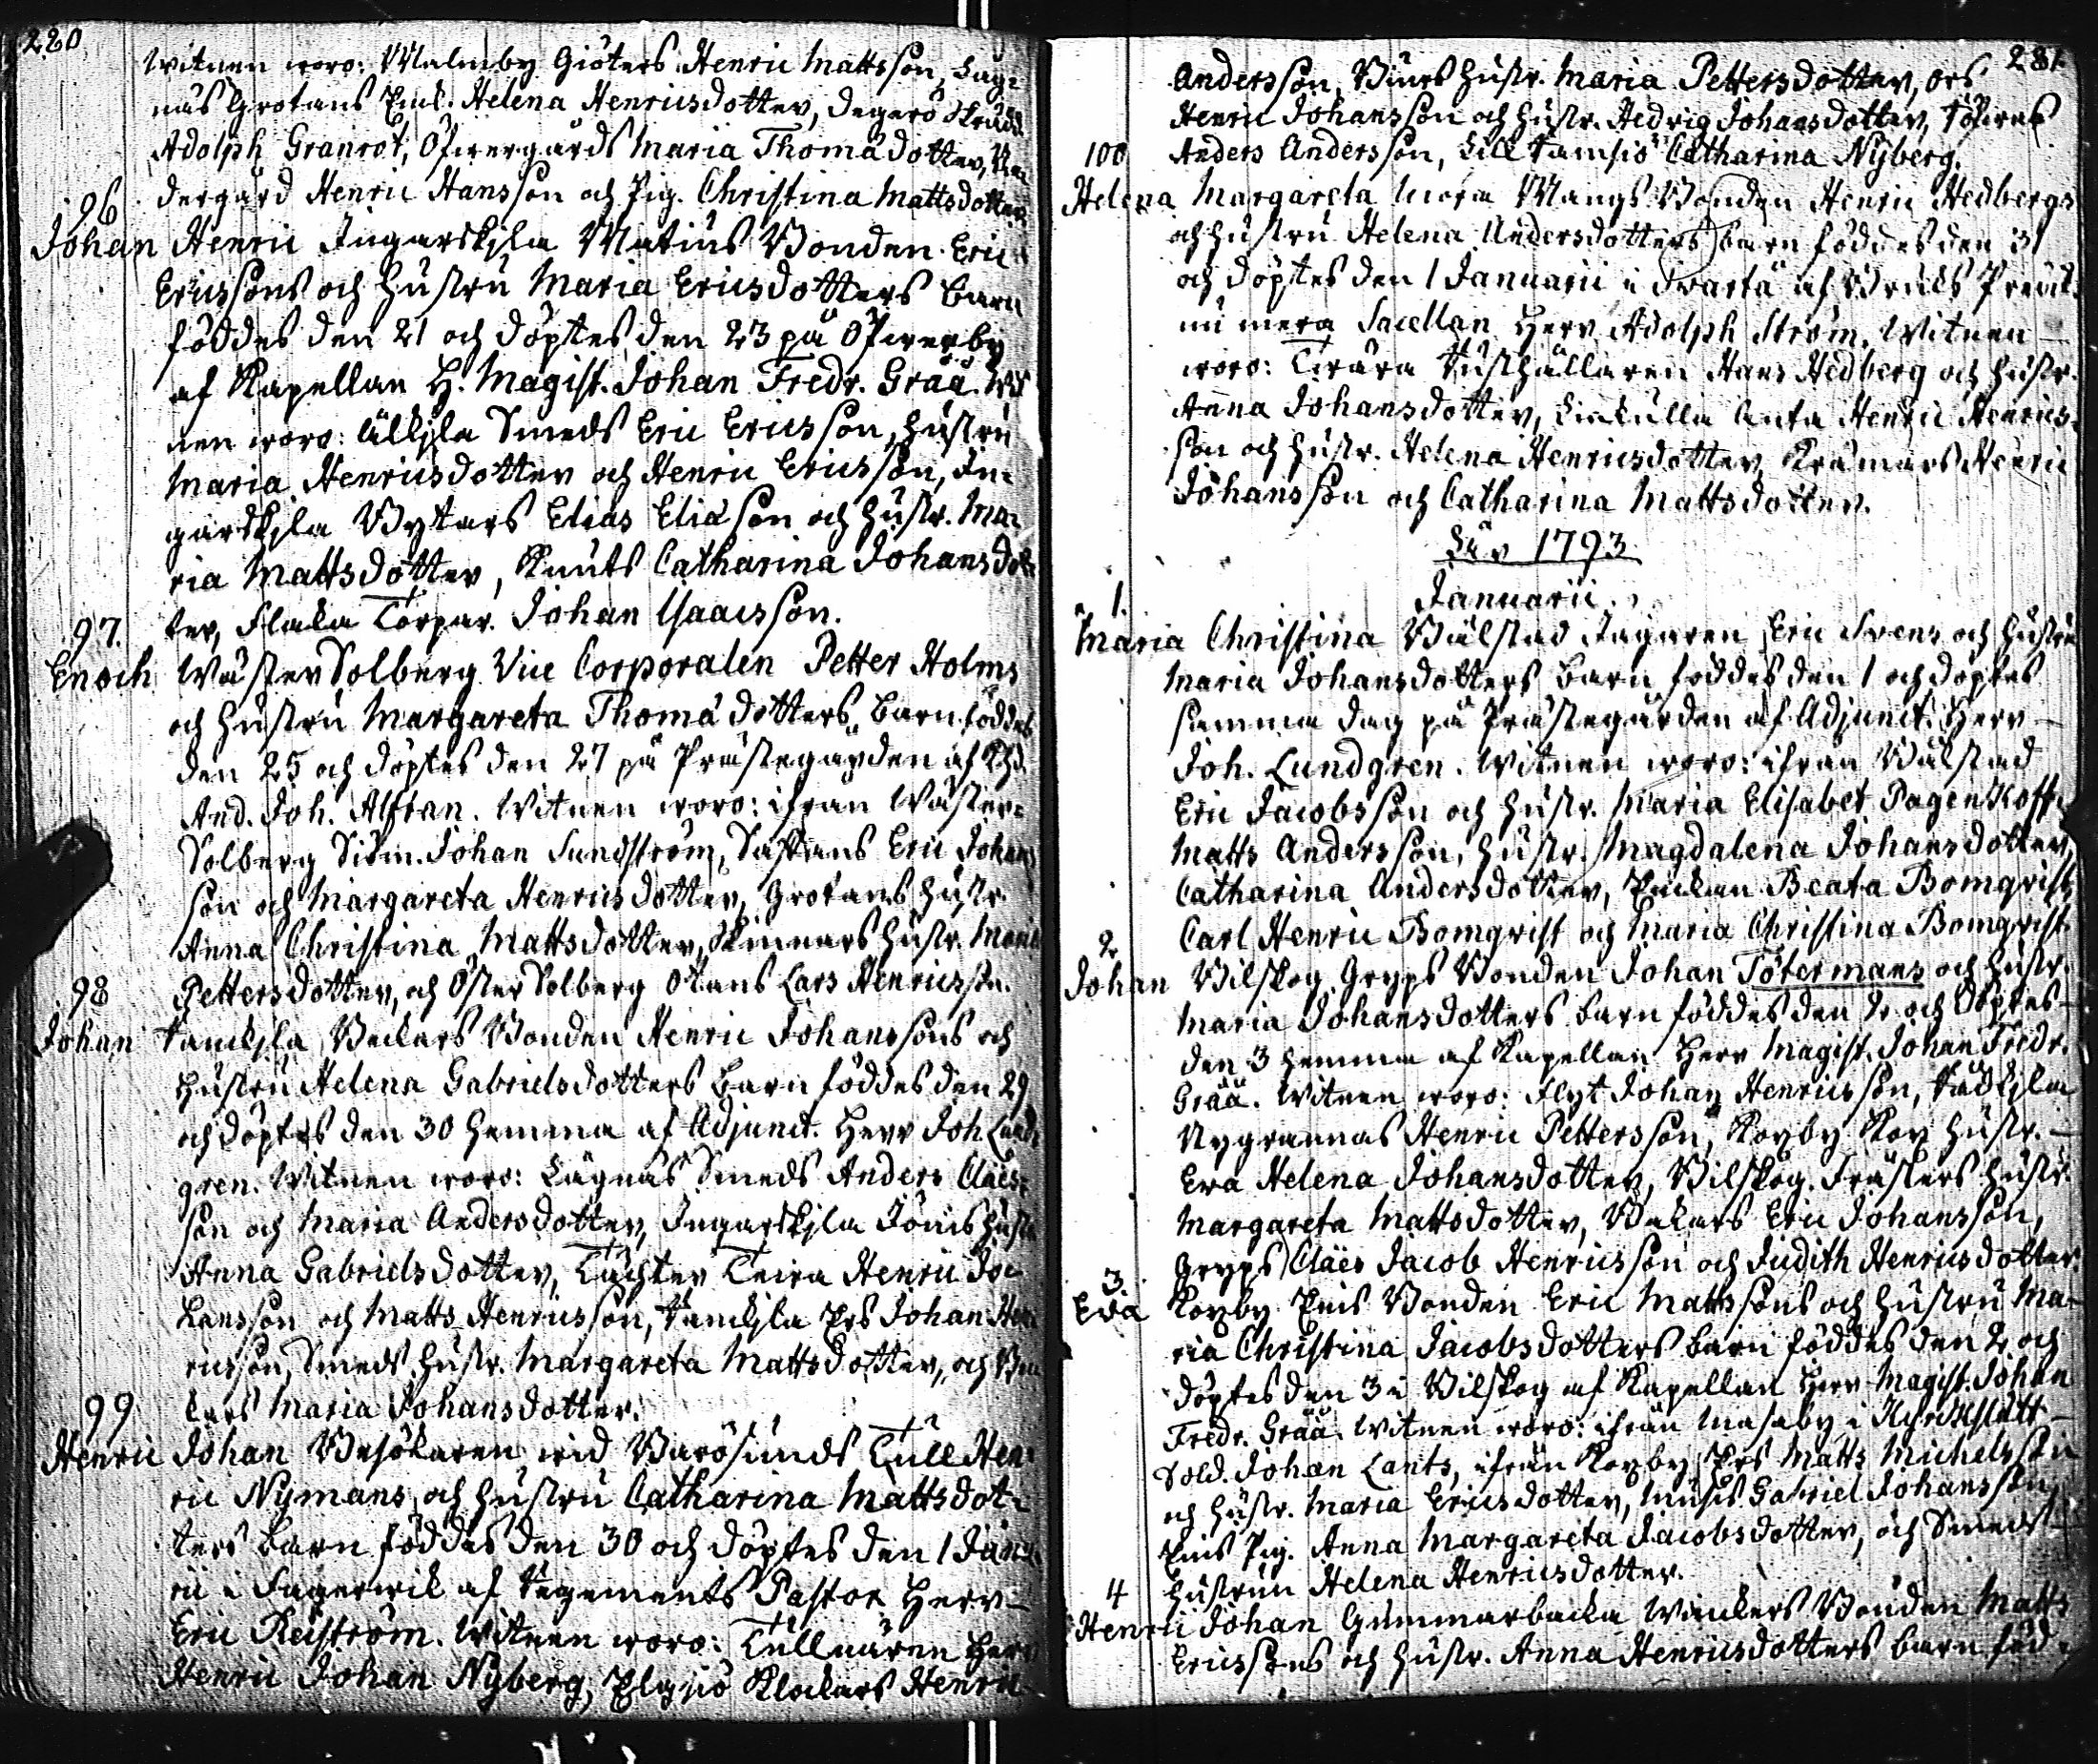 220
witnen woro: Malmby Giöters Henric Mattsson, Läg-
näs Grotans Enk. Helena Henricsdotter, Degerö
Adolph Granrot, Öfwergårds Maria Thomædotter,
dergård Henric Hansson och Pig. Christina Mattsdotter
96
Johan Henric Ingarskjla Matius Bonden Eric
Ericssons och hustru Maria Ericsdotters barn
föddes den 21 och döptes den 23 på Öfwerby
af Kapellan H. Magist. Johan Fredr. Grää. Wit
nen woro: Älkjla Smeds Eric Ericsson, hustru
Maria Henricsdotter och Henric Ericsson, In-
garskjla Bytars Elias Eliæson och hustr. Ma-
ria Mattsdotter, Knuts Catharina Johansdot-
ter, Flaka Torpar. Johan Isaacsson.
97.
Enoch Wäster Solberg Vice Corporalen Petter Holms
och hustru Margareta Thomædotters barn föddes
den 25 och döptes den 27 på Prästegården af
And. Joh. Alftan. Witnen woro: ifrån Wäster-
Solberg Sidm. Johan Sundström, Eric Johans
son och Margareta Henricsdotter, Grotans hustr.
Anna Christina Mattsdotter, Skinnars hustr. Maria
Pettersdotter, och Öster Solberg Otans Lars Henricsson.
98
Johan Bäckars Bonden Henric Johanssons och
hustru Helena Gabrielsdotters barn föddes den 29
och döptes den 30 hemma af Adjunct. Herr Joh Lund-
gren. Witnen woro: Lägnäs Smeds Anders Claës-
son och Maria Andersdotter, Ingarskjla Jönis hustr
Anna Gabrielsdotter, Täckter Henric Jo-
hansson och Matts Henricsson, Johan Hen
ricsson, Smeds hustr. Margareta Mattsdotter, och
kars Maria Johansdotter.
99
Henric Johan Besökaren wid Barösunds Tull Hen-
ric Nymans och hustru Catharina Mattsdot-
ters barn föddes den 30 och döptes den 1 Janua
rii i Fagerwik af Regements Pastor Herr
Eric Reiström. Witnen woro: Tullnären Herr
Henric Johan Nyberg, Elgsiö Klockars Henric
281.
Andersson, Bürs hustr. Maria Pettersdotter, Ors
Henric Johansson och hustr. Hedvig Johansdotter,
Anders Andersson, Lill Ramsiö Catharina Nyberg.
100
Helena Margareta Mora Mangs Bonden Henric Hedbergs
och hustru Helena Andersdotters barn föddes den 31
och döptes den 1 Januarii i Swartå af Bruks Predik.
nu mera Sacellan Herr Adolph Ström. Witnen
woro: Rusthållaren Hans Hedberg och hustr.
Anna Johansdotter, Linkulla Anta Henric Henrics-
son och hustr. Helena Henricsdotter, Kråmars Henric
Johansson och Catharina Mattsdotter.
Åhr 1793
Januarii
1.
Maria Christina Bålstad Jägaren Eric Svens och hustru
Maria Johansdotters barn föddes den 1 och döptes
samma dag på Prästegården af Adjunct. Herr
Joh. Lundgren. Witnen woro: ifrån Bålstad
Eric Jacobsson och hustr. Maria Elisabet Pagenkoff,
Matts Andersson, hustr. Magdalena Johansdotter,
Catharina Andersdotter, Enkan Beata Bomqvist,
Carl Henric Bomqvist och Maria Christina Bomqvist.
2
Johan Bilskog Gryps Bonden Johan Tötermans och hustr.
Maria Johansdotters barn föddes den 2 och döptes
den 3 hemma af Kapellan Herr Magist. Johan Fredr.
Grää. Witnen woro: Flyt Johan Henricsson, Rådkjla
Nygrannas Henric Pettersson, Koxby Kox hustr.
Eva Helena Johansdotter, Bilskog Frästers hustr.
Margareta Mattsdotter, Bakars Eric Johansson,
Gryps Claës Jacob Henricsson och Judith Henricsdotter.
3.
Eva Koxby Ens Bonden Eric Mattssons och hustru Ma-
ria Christina Jacobsdotters barn föddes den 2 och
döptes den 3 i Bilskog af Kapellan Herr Magist. Johan
Fredr. Grää. Witnen woro: ifrån Masaby i Kyrkslätt
Sold. Johan Lants, ifrån Koxby Ers Matts Michelsson
och hustr. Maria Ericsdotter, Gabriel Johansson,
Ens Pig. Anna Margareta Jacobsdotter, och Smeds
hustrun Helena Henricsdotter.
4
Henric Johan Gummarbacka Winkers Bonden Matts
Ericssons och hustr. Anna Henricsdotters barn föd-